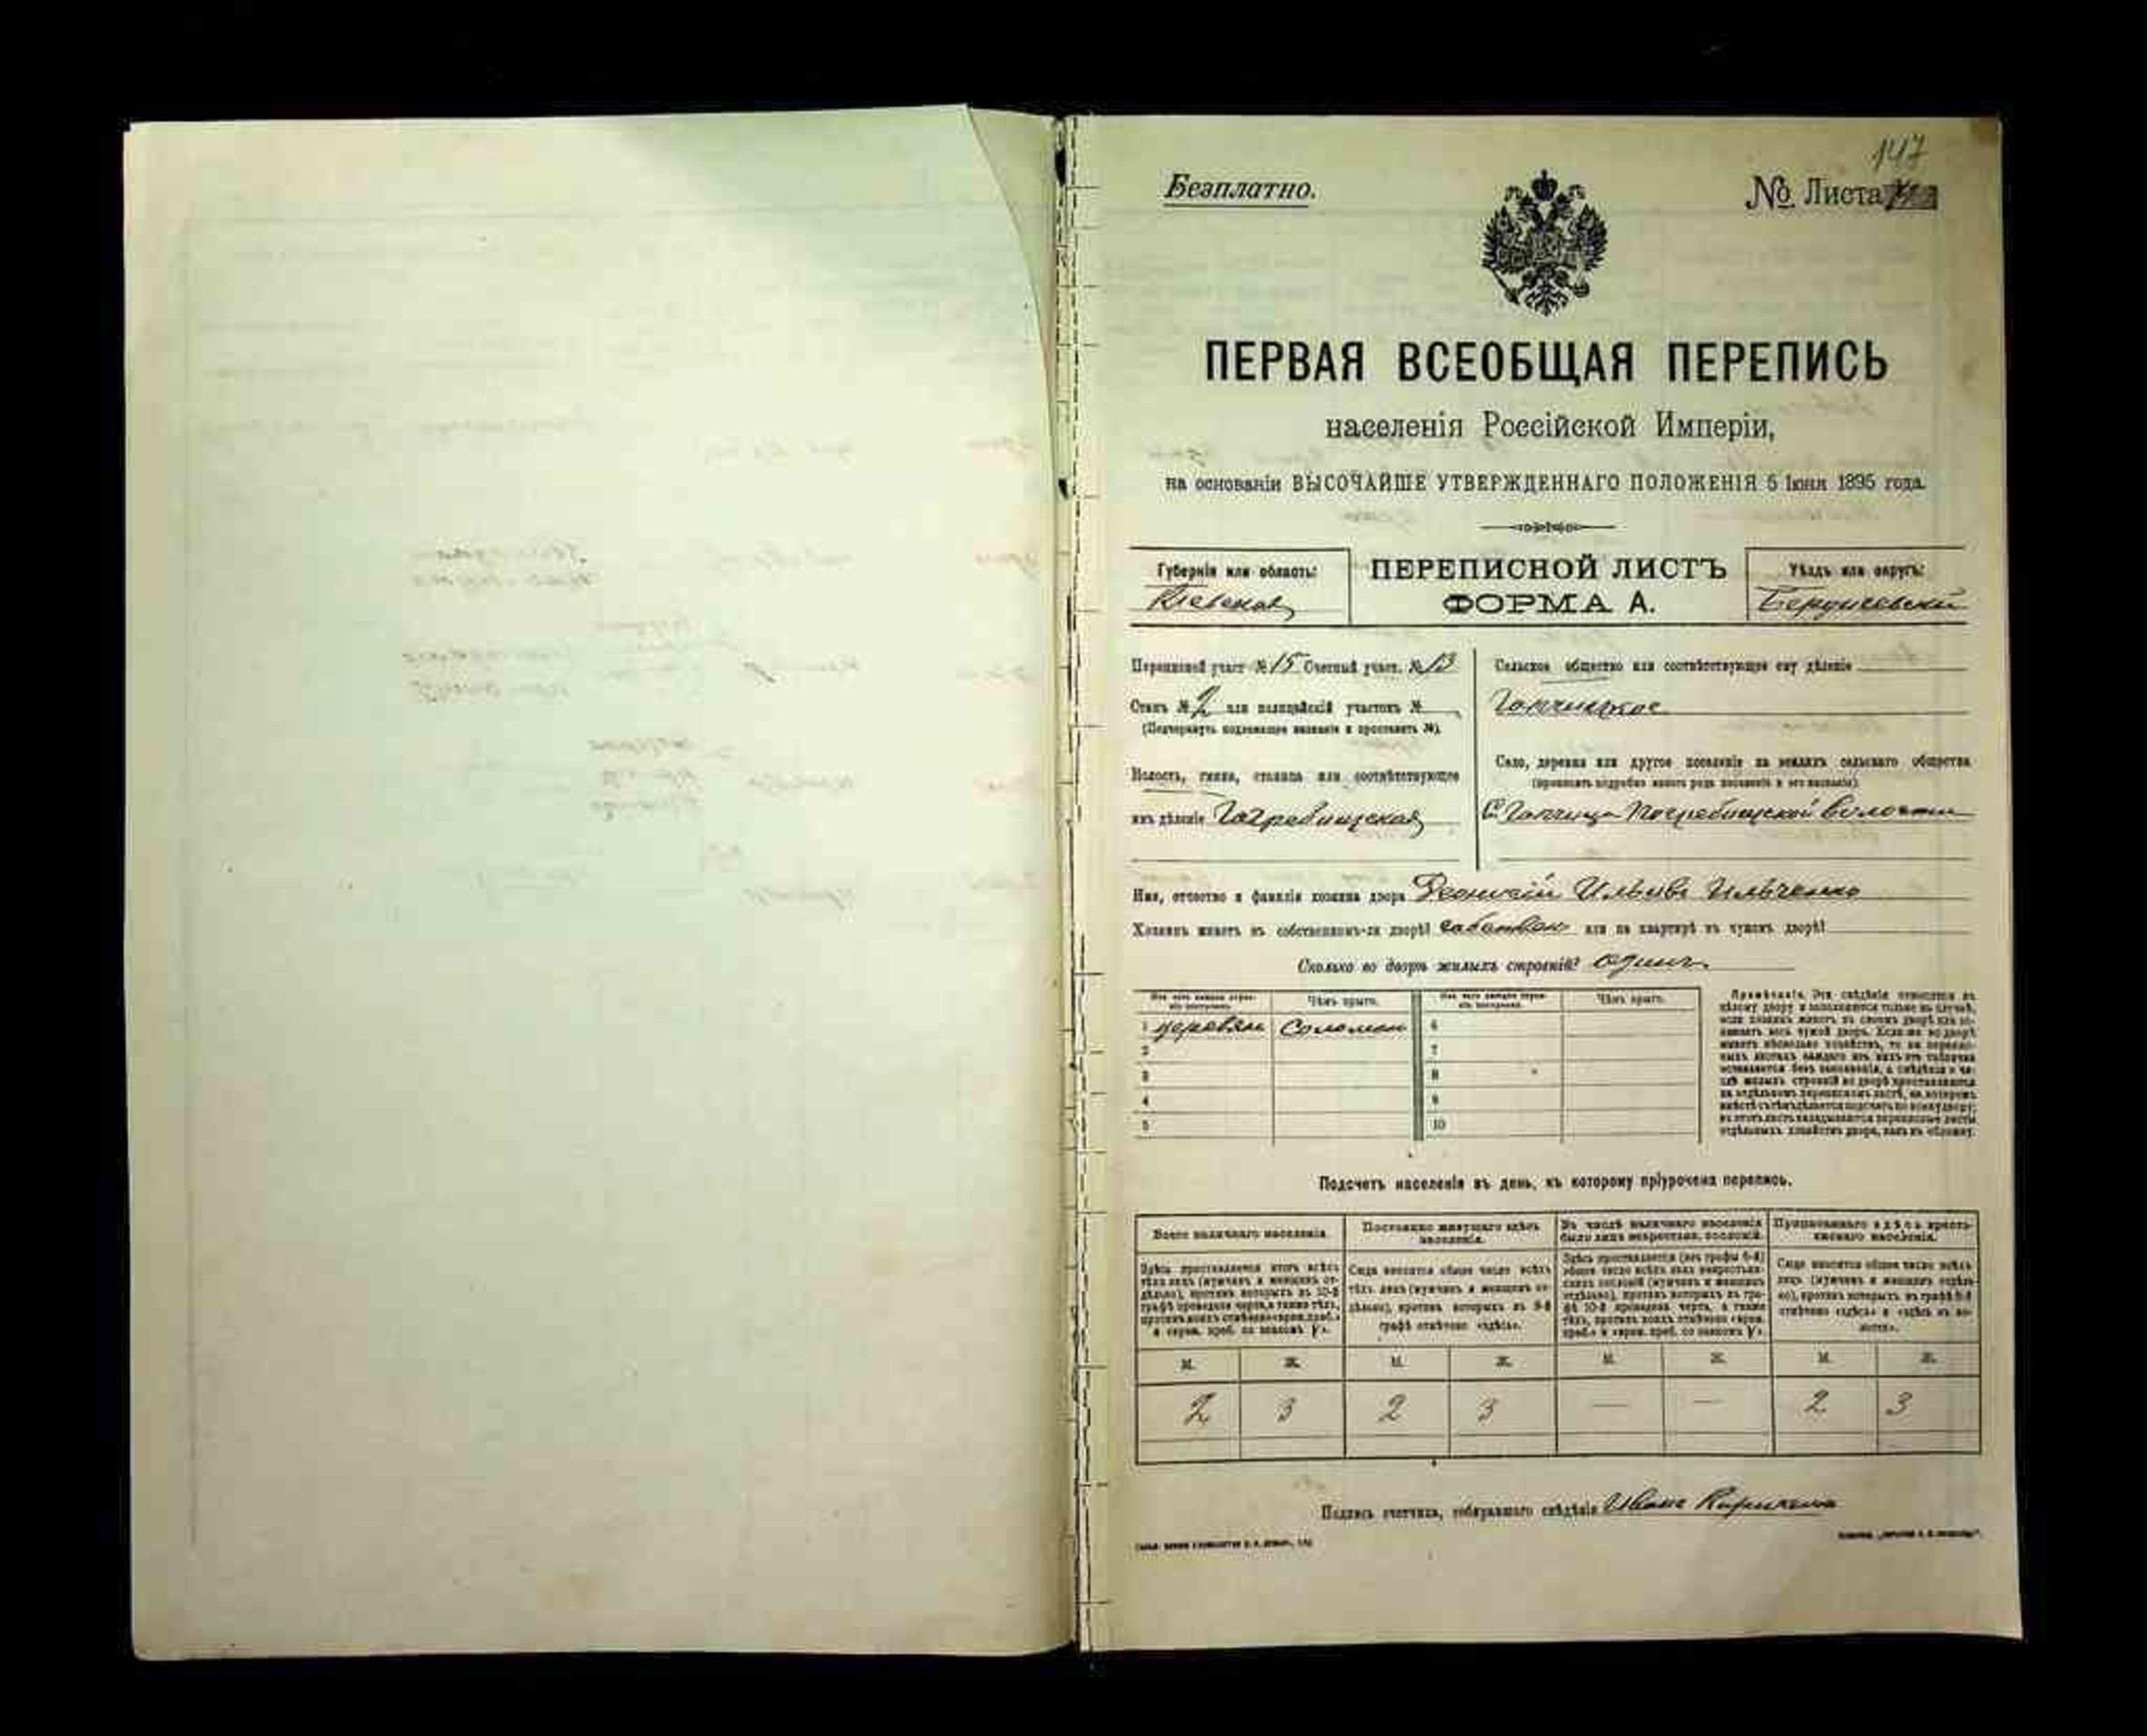 147
Безплатно.
№ Листа
ПЕРВАЯ ВСЕОБЩАЯ ПЕРЕПИСЬ
населенія Россійской Имперіи,
на основаніи ВЫСОЧАЙШЕ УТВЕРЖДЕННАГО ПОЛОЖЕНІЯ 5 Іюня 1895 года.
Губернія или область:
Кіевская
ПЕРЕПИСНОЙ ЛИСТЪ
ФОРМА А.
Уѣздъ или округъ:
Бердичевскій
Переписной участ. № 15 Счетный участ. № 13
Станъ № 2 или полицейскій участокъ №
(Подчеркнуть подлежащее названіе и проставить №).
Волость, гмина, станица или соотвѣтствующее
имъ дѣленіе Погребищская
Сельское общество или соотвѣтствующее ему дѣленіе
Гопчицкое
Село, деревня или другое поселеніе на земляхъ сельскаго общества
(прописать подробно какого рода поселеніе и его названіе).
С. Гопчица Погребищской волости
Имя, отчество и фамилія хозяина двора Леонтій Ильивъ Ильченко
Хозяинъ живетъ въ собственномъ-ли дворѣ? или на квартирѣ въ чужомъ дворѣ?
Сколько во дворѣ жилыхъ строеній? одинъ
Изъ чего каждое строеніе построено. Чѣмъ крыто. Изъ чего каждое строеніе построено. Чѣмъ крыто.
1 деревян Соломой 6
2 7
3 8
4 9
5 10
Примѣчаніе. Эти свѣдѣнія относятся къ
цѣлому двору и заполняются только въ случаѣ,
если хозяинъ живетъ въ своемъ дворѣ или занимаетъ весь чужой дворъ. Если же во дворѣ
живетъ нѣсколько хозяйствъ, то на переписныхъ листахъ каждаго изъ нихъ эта табличка
оставляется безъ заполненія, а свѣдѣнія о числѣ жилыхъ строеній во дворѣ проставляются
на отдѣльномъ переписномъ листѣ, на которомъ
вмѣстѣ съ тѣмъ дѣлается подсчетъ по всему двору;
въ этотъ листъ вкладываются переписные листы
отдѣльныхъ хозяйствъ двора, какъ въ обложку.
Подсчетъ населенія въ день, къ которому пріурочена перепись.
Всего наличнаго населенія.
Постоянно живущаго здѣсь населенія.
Въ числѣ наличнаго населенія было лицъ некрестьян. сословій.
Приписаннаго здѣсь крестьянскаго населенія.
Здѣсь проставляется итогъ всѣхъ тѣхъ лицъ (мужчинъ и женщинъ отдѣльно), противъ которыхъ въ 10-й графѣ проведена черта, а также тѣхъ, противъ коихъ отмѣчено «врем. преб.»
Сюда вносится общее число всѣхъ тѣхъ лицъ (мужчинъ и женщинъ отдѣльно), противъ которыхъ въ 9-й графѣ отмѣчено «здѣсь».
Здѣсь проставляется (изъ графы 6-й) общее число всѣхъ лицъ некрестьянскихъ сословій (мужчинъ и женщинъ отдѣльно), противъ которыхъ въ графѣ 10-й проведена черта, а также тѣхъ, противъ коихъ отмѣчено «врем. преб.»
Сюда вносится общее число всѣхъ лицъ (мужчинъ и женщинъ отдѣльно), противъ которыхъ въ графѣ 8-й отмѣчено «здѣсь» и «здѣсь въ волости».
М. Ж. М. Ж. М. Ж. М. Ж.
2 3 2 3 — — 2 3
Подпись счетчика, собиравшаго свѣдѣнія Иванъ